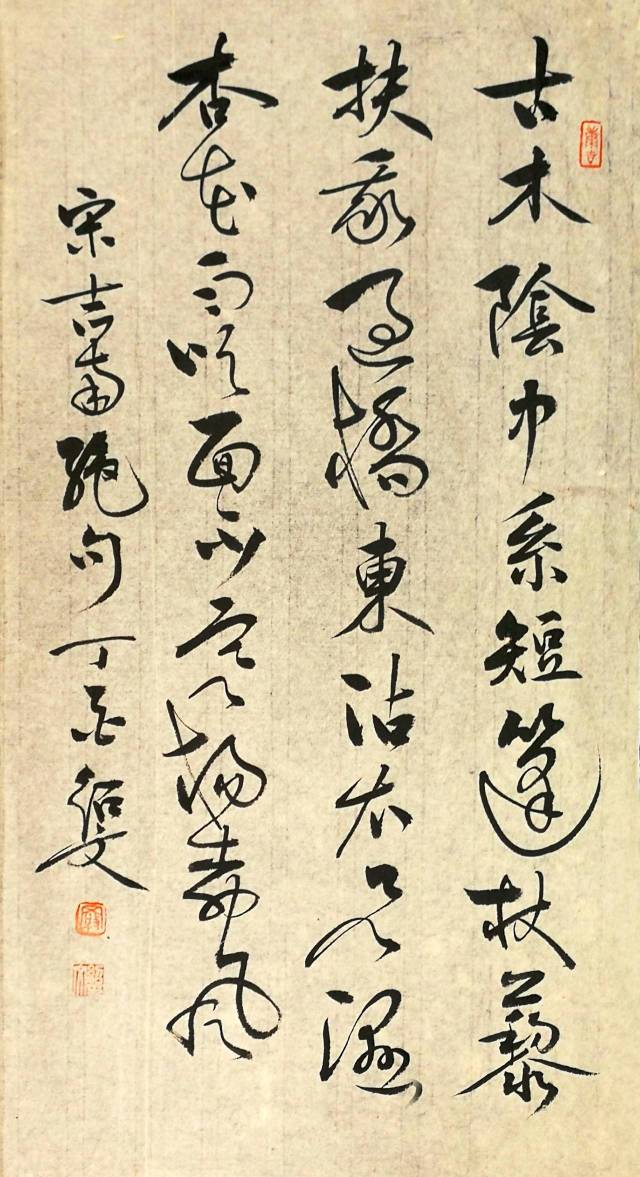 古木陰中系短篷杖藜
扶我過橋東沾衣欲濕
杏花雨吹面不寒楊柳風
宋志南絕句丁酉